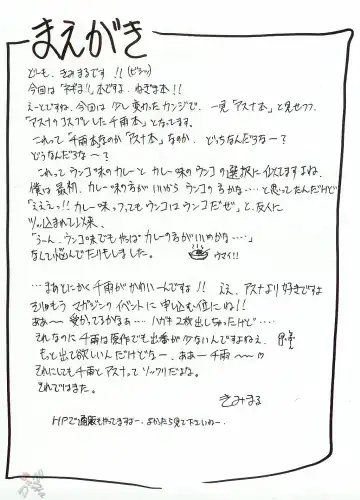 まえがき
どーも、きみまるです!!(ビシッ)
今回は「ネギま!」本ですよ、ねぎま本!!
えーとですね、今回は少し変わったカンジで、一見「アスナ本」と見せつつ、
「アスナのコスプレした千雨本」となってます。
これって「千雨本」なのか「アスナ本」なのか、どっちなんだろなー?
どうなんだろな〜?
これってウンコ味のカレーとカレー味のウンコの選択に似てますよね、
僕は最初、カレー味の方が いいからウンコの方かな…と思ってたんだけど
「えええっ!!カレー味っつってもウンコはウンコだぜ」と、友人に
ツッ込まれて以来、
「うーん、ウンコ味でもやっぱカレーの方がいいのかな…」
なんて悩んでたりもしました。
ウマイ!!
…まあとにかく千雨がかわいーんですよ!!ええ、アスナより好きですよ
マガジンのイベントに申し込む位にね!!
ああ〜 受かってるかなぁ…ハガキ2枚出しちゃったけど…
それなのに千雨は原作でも出番が少ないんですよねえ、
もっと出て欲しいんだけどなー、ああー千雨〜♡
それにしても千雨とアスナってソックリだよな。
それではまた。
きみまる
HPで通販もやってますよー、よかったら見て下さいねー。